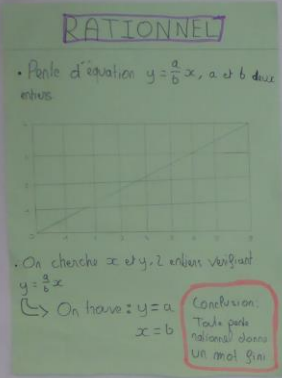 RATIONNEL
• Pente d'équation y = a/b x, a et b deux
entiers
• On cherche x et y, 2 entiers vérifiant
y = a/b x
↳ On trouve : y = a
x = b
Conclusion :
Toute pente
rationnel donne
un mot fini